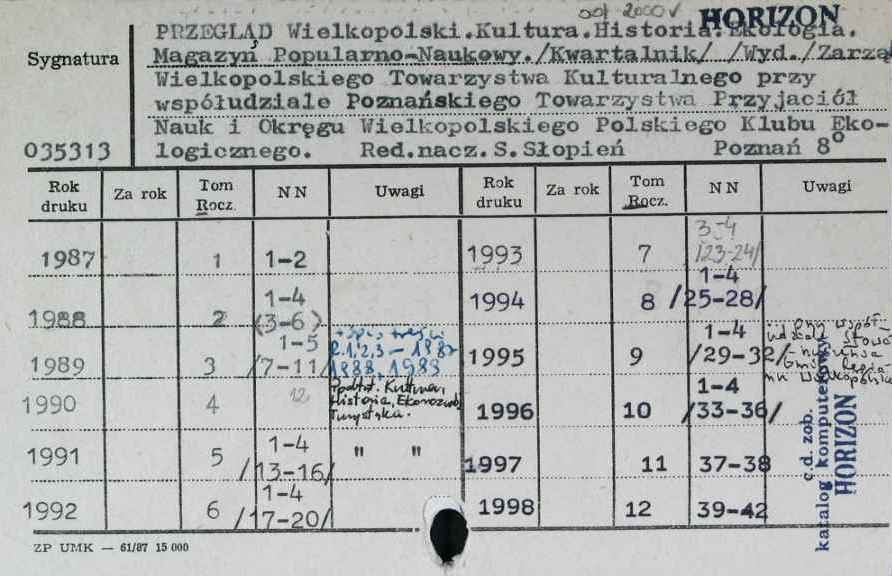 od 2000 HORIZON
PRZEGLĄD Wielkopolski.Kultura.Historia.Ekologia.
Sygnatura Magazyn Popularno-Naukowy./Kwartalnik/ /Wyd./Zarzą
Wielkopolskiego Towarzystwa Kulturalnego przy
współudziale Poznańskiego Towarzystwa Przyjaciół
Nauk i Okręgu Wielkopolskiego Polskiego Klubu Eko-
035313 logicznego. Red.nacz.S.Słopień Poznań 8°
Rok druku Za rok Tom Rocz. NN Uwagi Rok druku Za rok Tom Rocz. NN Uwagi
1987 1 1-2 1993 7 3-4 /23-24/
1988 2 1-4 (3-6) 1994 8 1-4 /25-28/
1989 3 1-5 /7-11/ + spis treści R.1,2,3 - 1987 1988, 1989 1995 9 1-4 /29-32/ przy współ-
1990 4 12 Podtyt. Kultura, Historia, Ekorozwój, Turystyka. 1996 10 1-4 /33-36/
1991 5 1-4 /13-16/ " " 1997 11 37-38
1992 6 1-4 /17-20/ 1998 12 39-42
c.d. zob.
katalog komputerowy
HORIZON
ZP UMK — 61/87 15 000